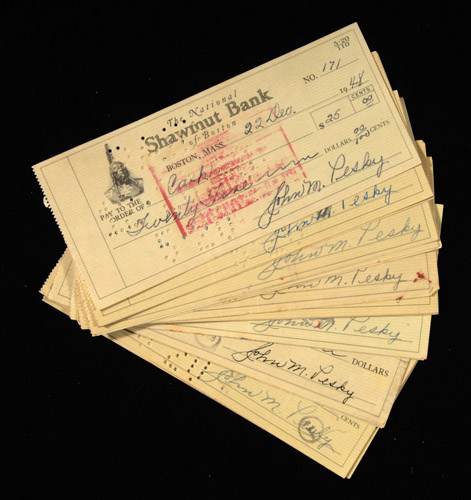 5-20
110
NO. 171
The National
Shawmut Bank
of Boston
BOSTON, MASS. 22 Dec. 1948
PAY TO THE
ORDER OF
Cash
$ 25 00
CENTS
Twenty Five
00/100
DOLLARS CENTS
John M. Pesky
John M. Pesky
John M. Pesky
John M. Pesky
John M. Pesky
DOLLARS
John M. Pesky
CENTS
John M. Pesky